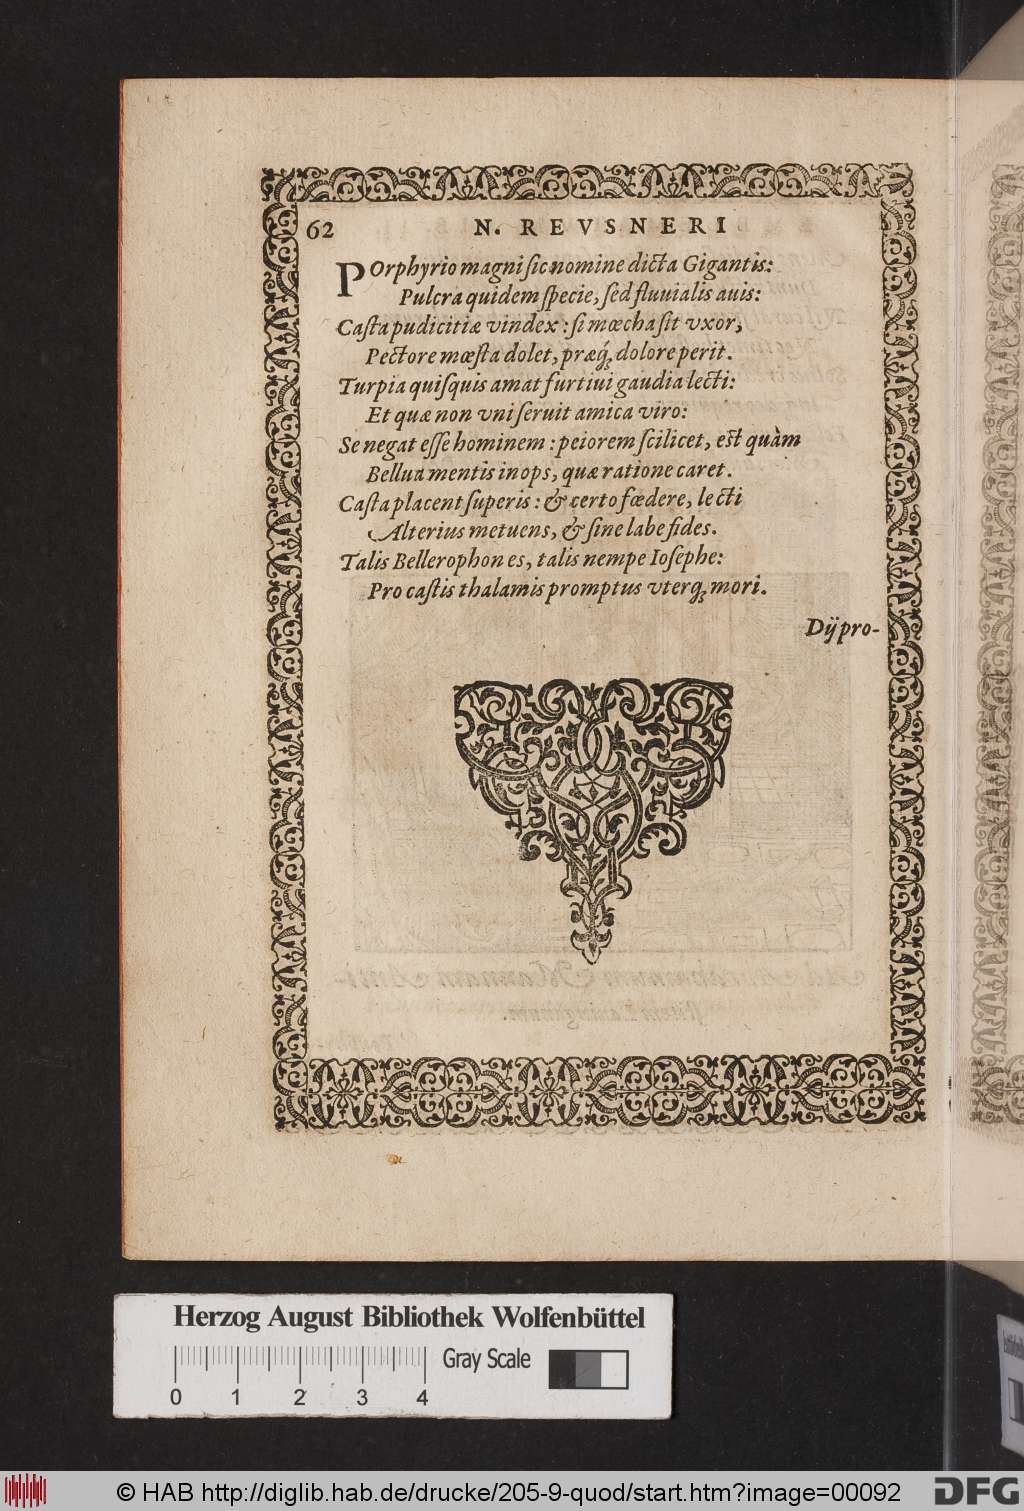 62 N. REVSNERI
POrphyrio magni sic nomine dicta Gigantis:
Pulcra quidem specie, sed fluuialis auis:
Casta pudicitiæ vindex: si mœcha sit vxor,
Pectore mœsta dolet, præq́; dolore perit.
Turpia quisquis amat furtiui gaudia lecti:
Et quæ non vni seruit amica viro:
Se negat esse hominem: peiorem scilicet, est quàm
Bellua mentis inops, quæ ratione caret.
Casta placent superis: & certo fœdere, lecti
Alterius metuens, & sine labe fides.
Talis Bellerophon es, talis nempe Iosephe:
Pro castis thalamis promptus vterq; mori.
Dij pro-
Herzog August Bibliothek Wolfenbüttel
Gray Scale
0 1 2 3 4
© HAB http://diglib.hab.de/drucke/205-9-quod/start.htm?image=00092
DFG